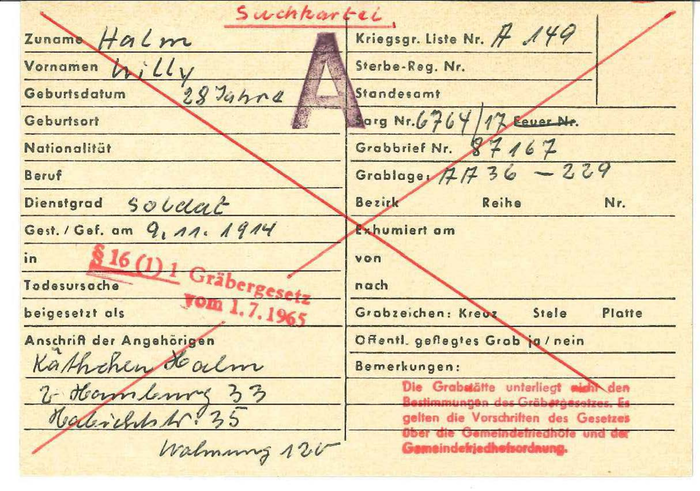 Suchkartei
A
Zuname Halm
Vornamen Willy
Geburtsdatum 28 Jahre
Geburtsort
Nationalität
Beruf
Dienstgrad Soldat
Gest. / Gef. am 9.11.1914
in
Todesursache
beigesetzt als
§ 16 (1) 1 Gräbergesetz
vom 1.7.1965
Anschrift der Angehörigen
Käthchen Halm
2 Hamburg 33
Habichtstr. 35
Wohnung 120
Kriegsgr. Liste Nr. A 149
Sterbe-Reg. Nr.
Standesamt
Sarg Nr. 6764/17 Feuer Nr.
Grabbrief Nr. 87167
Grablage: AA 36 - 229
Bezirk Reihe Nr.
Exhumiert am
von
nach
Grabzeichen: Kreuz Stele Platte
Öffentl. gepflegtes Grab ja / nein
Bemerkungen:
Die Grabstätte unterliegt nicht den
Bestimmungen des Gräbergesetzes. Es
gelten die Vorschriften des Gesetzes
über die Gemeindefriedhöfe und der
Gemeindefriedhofsordnung.